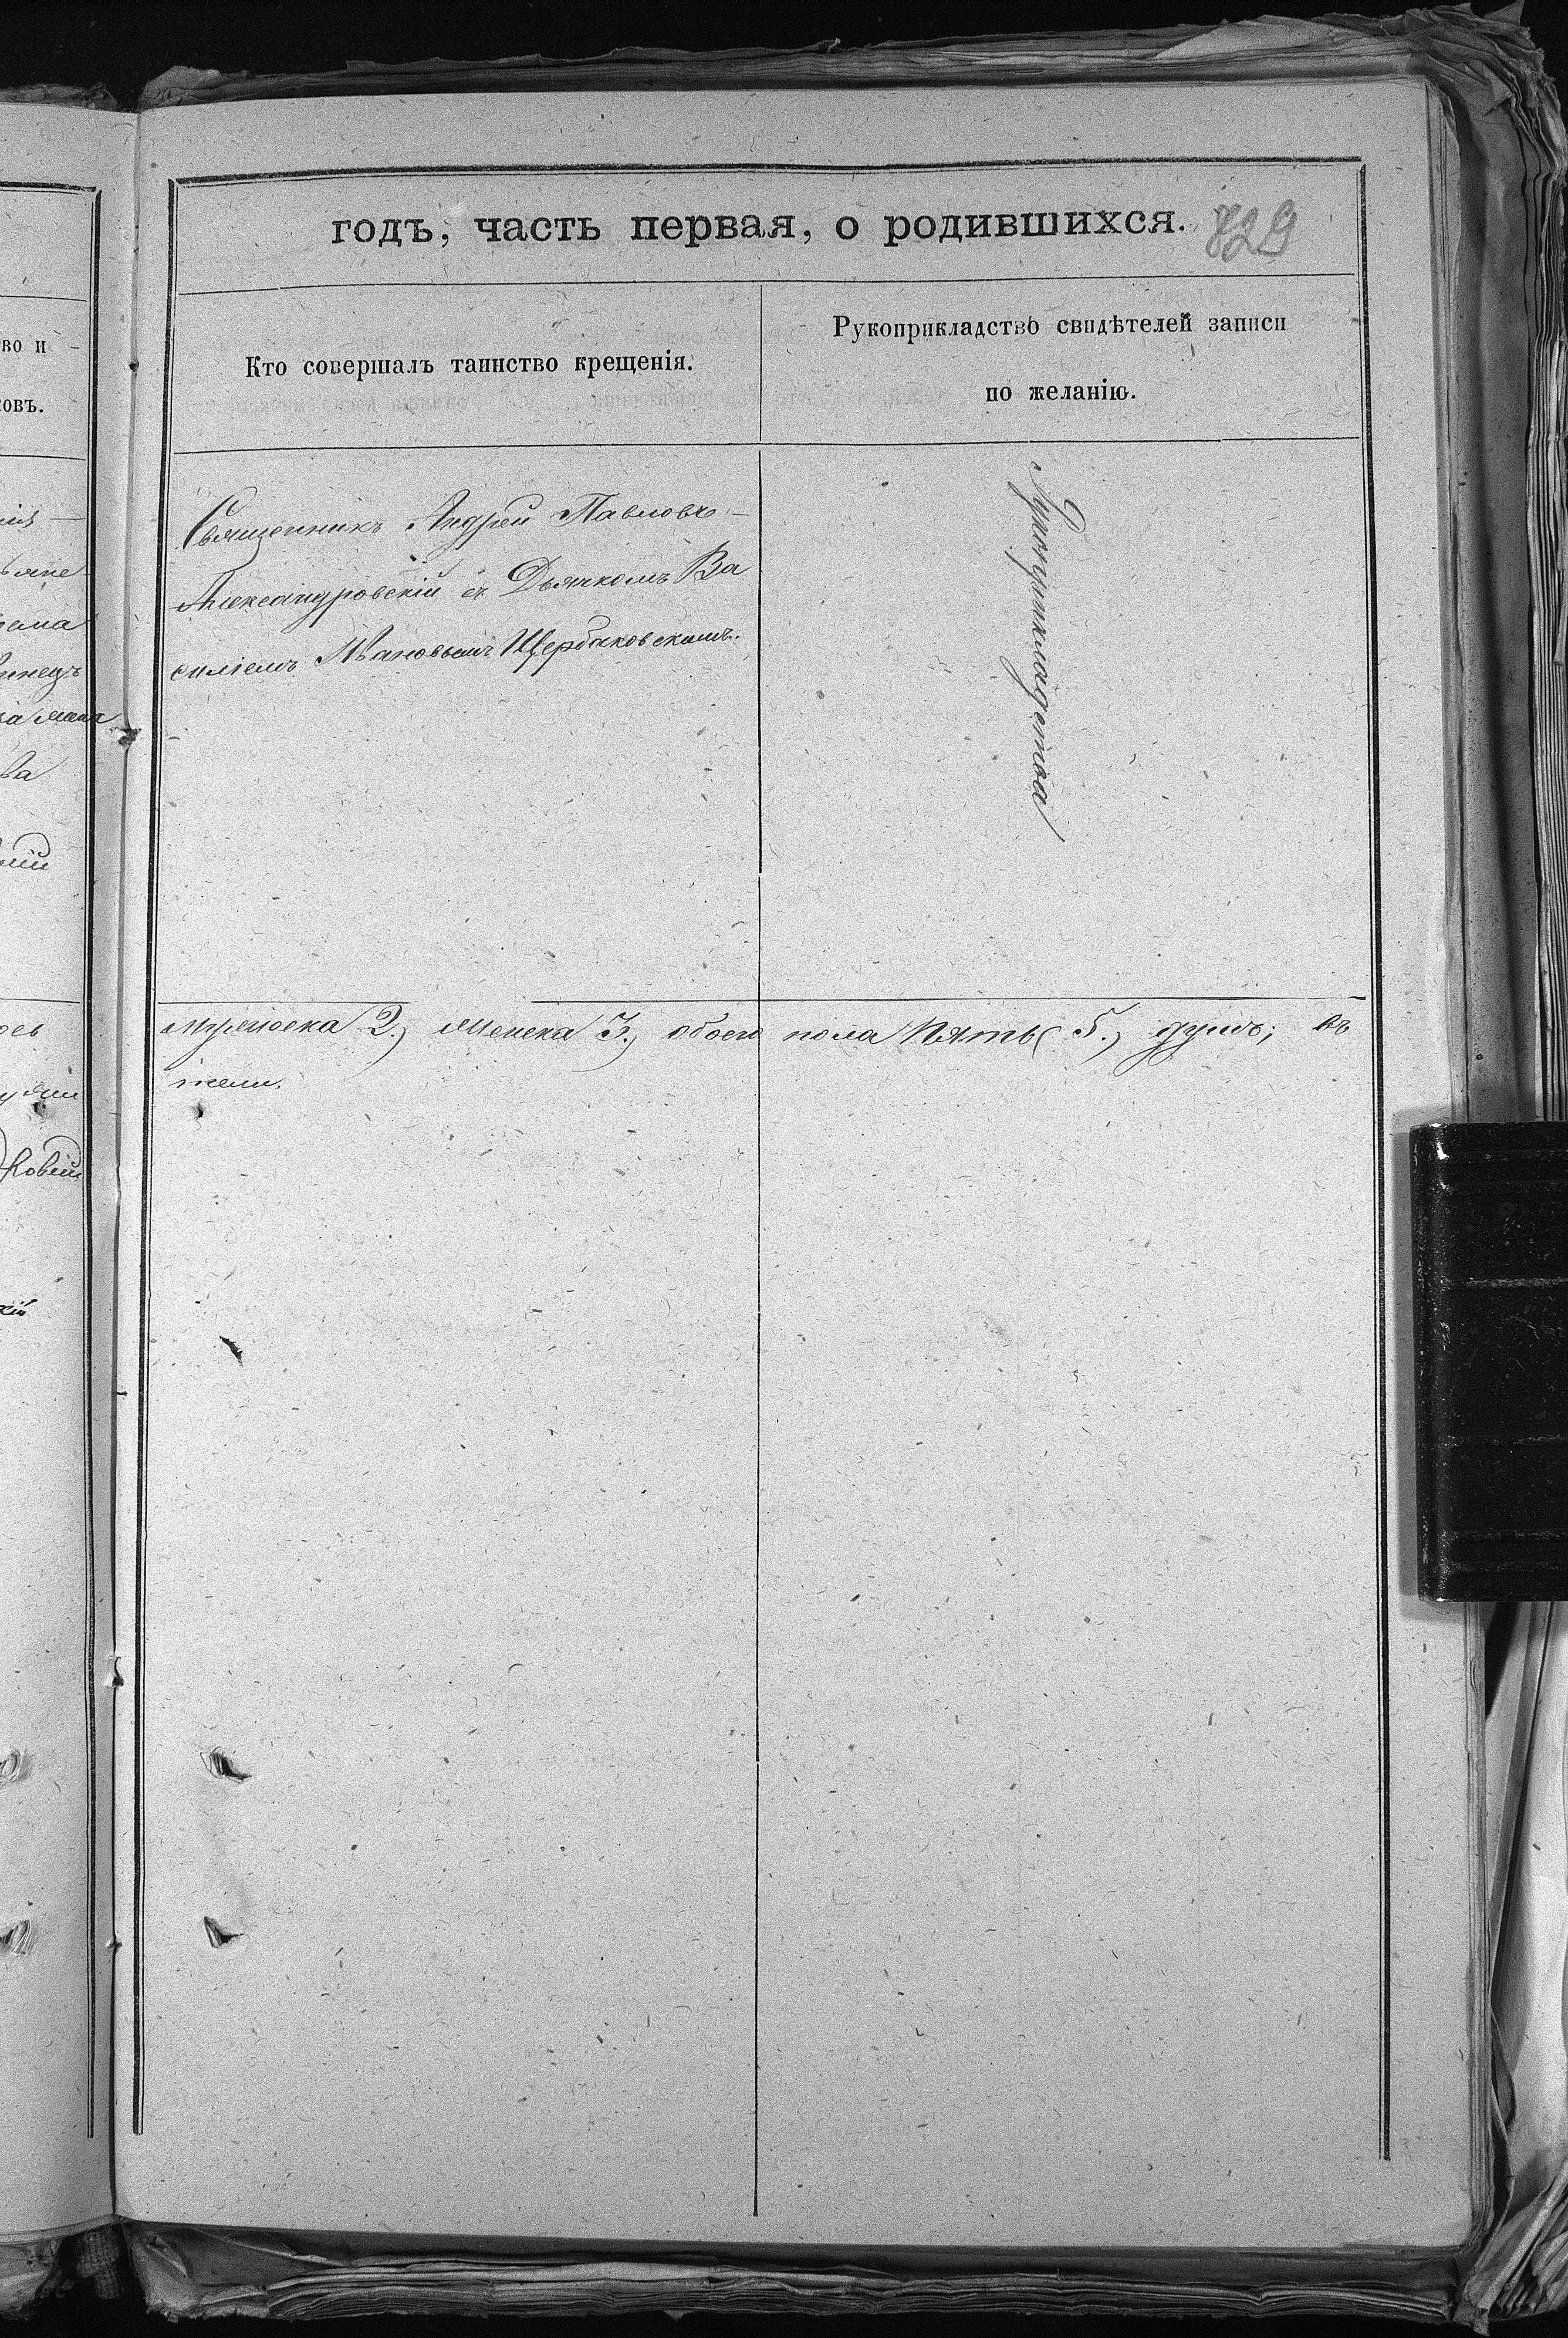 во и
овъ.
годъ, часть первая, о родившихся. 829
Кто совершалъ таинство крещенія.
Рукоприкладство свидѣтелей записи
по желанію.
Священникъ Андрей Павловъ
Александровскій съ Дьячкомъ Ва
силіемъ Ивановымъ Щербаковскимъ.
Рукоприкладства
мужеска 2.) женска 3.) обоего пола пять (5.) душъ; въ
тели.